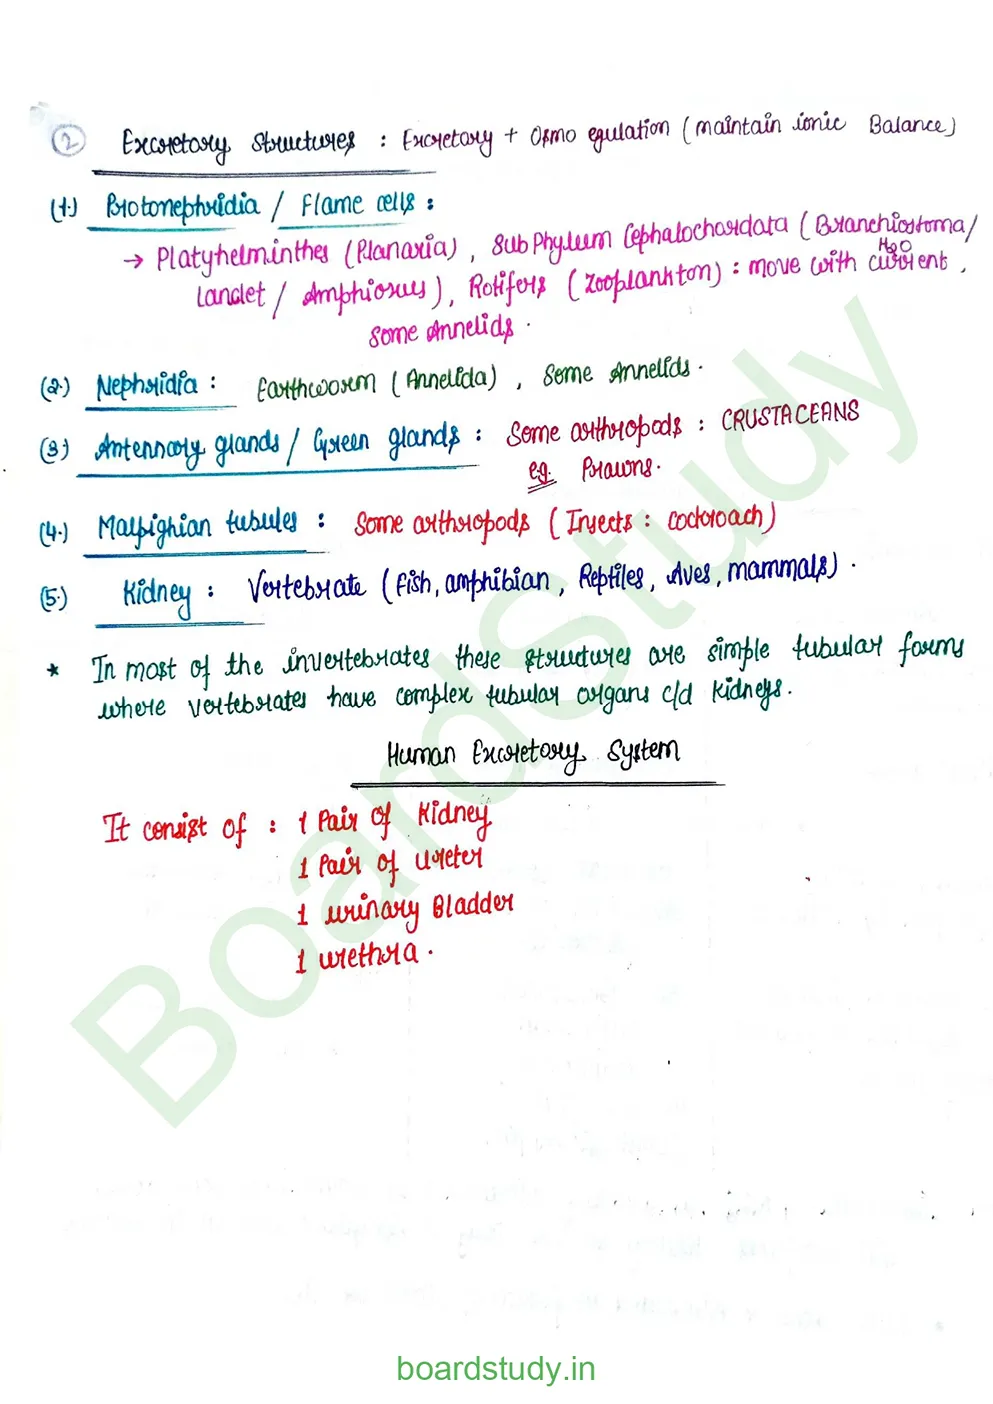 2 Excretory Structures : Excretory + Osmo egulation (maintain ionic Balance)
(1.) Protonephridia / Flame cells :
→ Platyhelminthes (Planaria), Sub Phylum Cephalochordata (Branchiostoma/
Lanclet / Amphioxus), Rotifers (Zooplankton) : move with H₂O current,
some Annelids.
(2.) Nephridia : Earthworm (Annelida), Some Annelids.
(3) Antennary glands / Green glands : Some arthropods : CRUSTACEANS
eg. Prawns.
(4.) Malpighian tubules : Some arthropods (Insects : cockroach)
(5.) Kidney : Vertebrate (Fish, amphibian, Reptiles, Aves, mammals).
* In most of the invertebrates these structures are simple tubular forms
where vertebrates have complex tubular organs c/d kidneys.
Human Excretory System
It consist of : 1 Pair of Kidney
1 Pair of Ureter
1 urinary Bladder
1 urethra.
BoardStudy
boardstudy.in